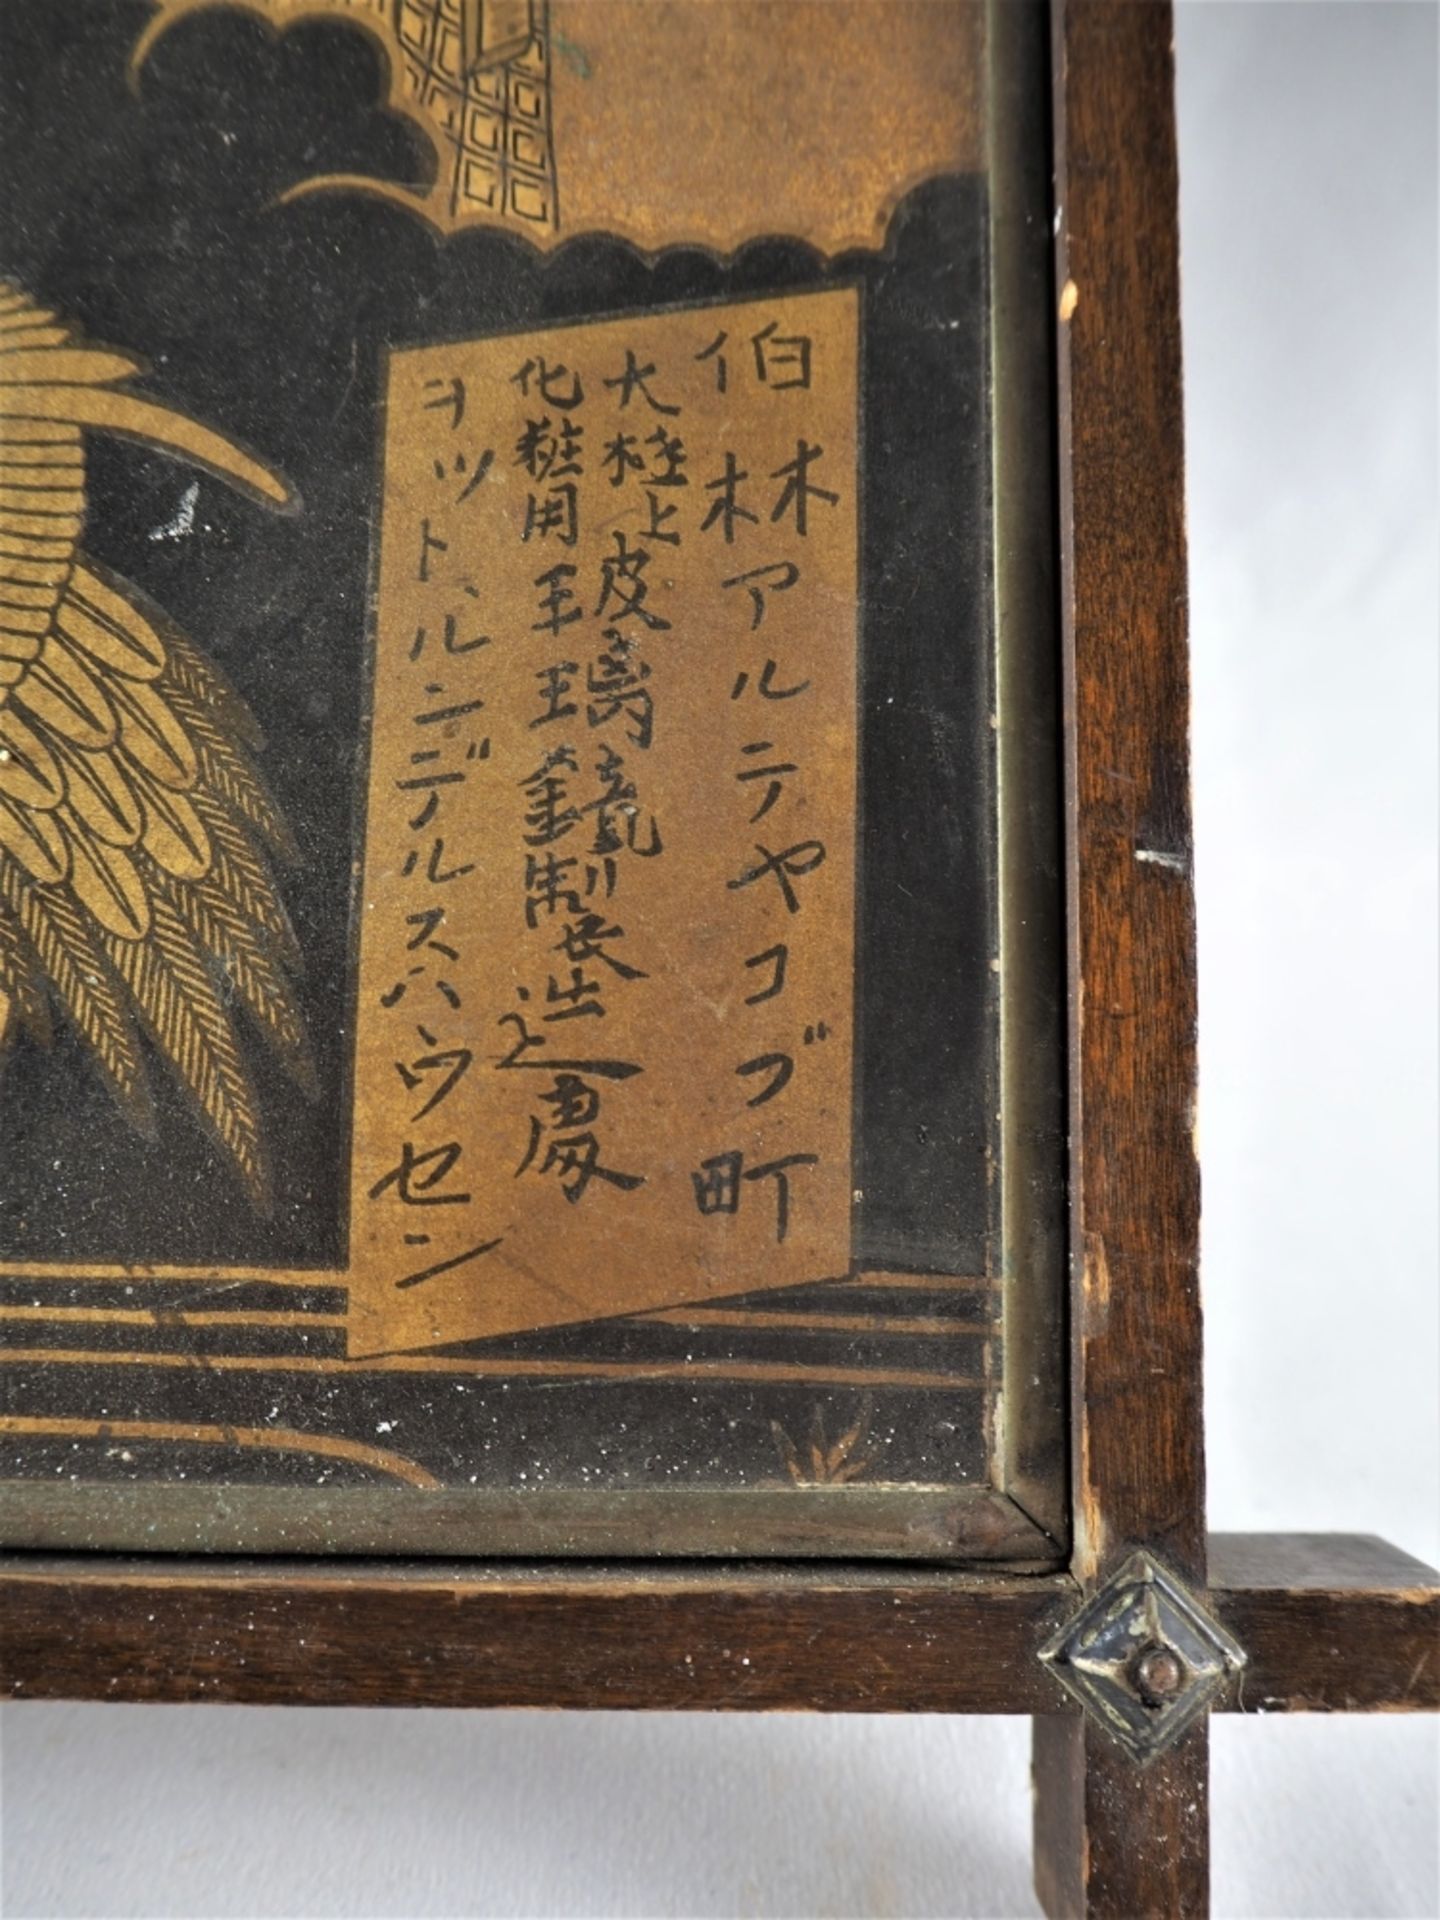 伯林アルテヤコブ町
大極上
化粧用
玻璃鏡製造處
ヲツト、ルニデルスハウセン